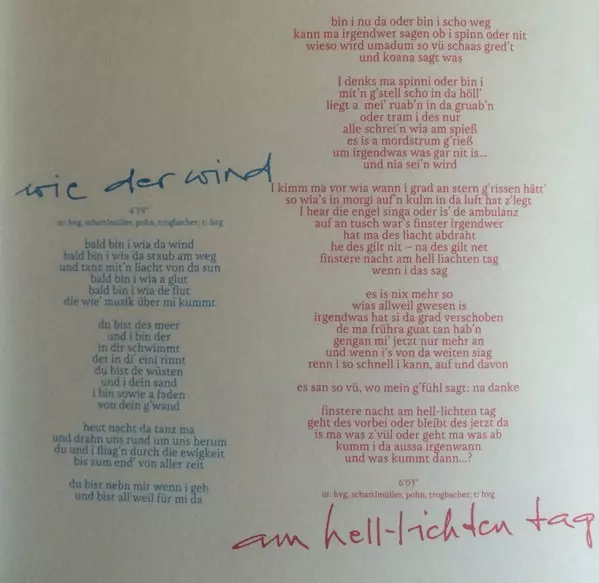 wie der wind
6'19"
m: hvg, schartlmüller, pohn, trogbacher; t: hvg
bald bin i wia da wind
bald bin i wia da staub am weg
und tanz mit'n liacht von da sun
bald bin i wia a glut
bald bin i wia de flut
die wie' musik über mi kummt
du bist des meer
und i bin der
in dir schwimmt
der in di' eini rinnt
du bist de wüsten
und i dein sand
i bin sowie a faden
von dein g'wand
heut nacht da tanz ma
und drahn uns rund um uns herum
du und i fliag'n durch die ewigkeit
bis zum end' von aller zeit
du bist nebn mir wenn i geh
und bist all'weil für mi da
bin i nu da oder bin i scho weg
kann ma irgendwer sagen ob i spinn oder nit
wieso wird umadum so vü schaas gred't
und koana sagt was
I denks ma spinni oder bin i
mit'n g'stell scho in da höll'
liegt a mei' ruab'n in da gruab'n
oder tram i des nur
alle schrei'n wia am spieß
es is a mordstrum g'rieß
um irgendwas was gar nit is...
und nia sei'n wird
I kimm ma vor wia wann i grad an stern g'rissen hätt'
so wia's in morgi auf'n kulm in da luft hat z'legt
I hear die engel singa oder is' de ambulanz
auf an tusch war's finster irgendwer
hat ma des liacht abdraht
he des gilt nit – na des gilt net
finstere nacht am hell liachten tag
wenn i das sag
es is nix mehr so
wias allweil gwesen is
irgendwas hat si da grad verschoben
de ma frühra guat tan hab'n
gengan mi' jetzt nur mehr an
und wenn i's von da weiten siag
renn i so schnell i kann, auf und davon
es san so vü, wo mein g'fühl sagt: na danke
finstere nacht am hell-lichten tag
geht des vorbei oder bleibt des jetzt da
is ma was z'vül oder geht ma was ab
kumm i da aussa irgenwann
und was kummt dann...?
6'03"
m: hvg, schartlmüller, pohn, trogbacher; t: hvg
am hell-lichten tag